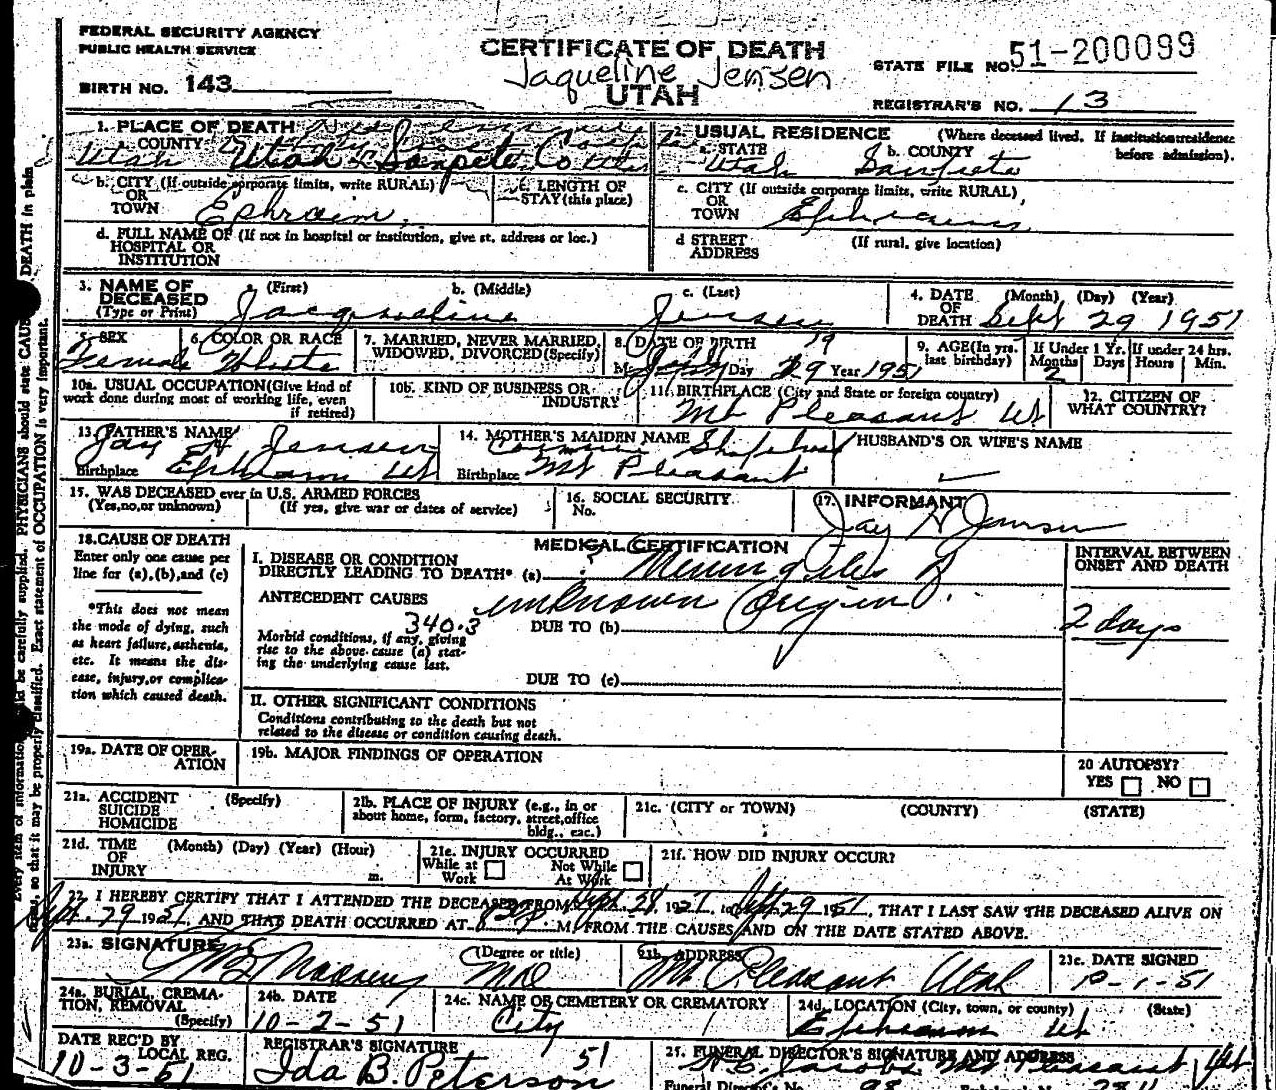 FEDERAL SECURITY AGENCY
PUBLIC HEALTH SERVICE
BIRTH NO. 143
CERTIFICATE OF DEATH
Jaqueline Jensen
UTAH
STATE FILE NO. 51-200099
REGISTRAR'S NO. 13
1. PLACE OF DEATH
COUNTY
Utah Utah Sanpete Co
2. USUAL RESIDENCE (Where deceased lived. If institution: residence before admission).
a. STATE b. COUNTY
Utah Sanpete
b. CITY (If outside corporate limits, write RURAL)
OR
TOWN Ephraim,
c. LENGTH OF
STAY (this place)
c. CITY (If outside corporate limits, write RURAL)
OR
TOWN Ephraim
d. FULL NAME OF (If not in hospital or institution, give st. address or loc.)
HOSPITAL OR
INSTITUTION
d STREET (If rural, give location)
ADDRESS
3. NAME OF DECEASED (Type or Print)
a. (First) b. (Middle) c. (Last)
Jacqueline Jensen
4. DATE OF DEATH (Month) (Day) (Year)
Sept 29 1951
5. SEX
Female
6. COLOR OR RACE
White
7. MARRIED, NEVER MARRIED,
WIDOWED, DIVORCED (Specify)
8. DATE OF BIRTH
Mo. July Day 29 Year 1951
9. AGE (In yrs. last birthday)
If Under 1 Yr. Months Days
2
If under 24 hrs. Hours Min.
10a. USUAL OCCUPATION (Give kind of
work done during most of working life, even
if retired)
10b. KIND OF BUSINESS OR
INDUSTRY
11. BIRTHPLACE (City and State or foreign country)
Mt Pleasant Ut
12. CITIZEN OF
WHAT COUNTRY?
13. FATHER'S NAME
Jay H Jensen
Birthplace Ephraim Ut
14. MOTHER'S MAIDEN NAME
Birthplace Mt Pleasant
HUSBAND'S OR WIFE'S NAME
15. WAS DECEASED ever in U.S. ARMED FORCES
(Yes, no, or unknown) (If yes, give war or dates of service)
16. SOCIAL SECURITY
No.
17. INFORMANT
Jay H Jensen
18. CAUSE OF DEATH
Enter only one cause per
line for (a), (b), and (c)
*This does not mean
the mode of dying, such
as heart failure, asthenia,
etc. It means the dis-
ease, injury, or complica-
tion which caused death.
MEDICAL CERTIFICATION
I. DISEASE OR CONDITION
DIRECTLY LEADING TO DEATH* (a) Meningitis
ANTECEDENT CAUSES unknown Origin.
340.3
DUE TO (b)
Morbid conditions, if any, giving
rise to the above cause (a) stat-
ing the underlying cause last.
DUE TO (c)
INTERVAL BETWEEN
ONSET AND DEATH
2 days
II. OTHER SIGNIFICANT CONDITIONS
Conditions contributing to the death but not
related to the disease or condition causing death.
19a. DATE OF OPER-
ATION
19b. MAJOR FINDINGS OF OPERATION
20 AUTOPSY?
YES NO
21a. ACCIDENT (Specify)
SUICIDE
HOMICIDE
21b. PLACE OF INJURY (e.g., in or
about home, form, factory, street, office
bldg., eac.)
21c. (CITY or TOWN) (COUNTY) (STATE)
21d. TIME (Month) (Day) (Year) (Hour)
OF
INJURY m.
21e. INJURY OCCURRED
While at Work Not While At Work
21f. HOW DID INJURY OCCUR?
22. I HEREBY CERTIFY THAT I ATTENDED THE DECEASED FROM Sept. 28, 1951, to Sept 29 1951, THAT I LAST SAW THE DECEASED ALIVE ON
Sept. 29 1951, AND THAT DEATH OCCURRED AT M, FROM THE CAUSES AND ON THE DATE STATED ABOVE.
23a. SIGNATURE (Degree or title)
MD
23b. ADDRESS
Mt Pleasant Utah
23c. DATE SIGNED
10-1-51
24a. BURIAL, CREMA-
TION, REMOVAL
(Specify)
24b. DATE
10-2-51
24c. NAME OF CEMETERY OR CREMATORY
City
24d. LOCATION (City, town, or county) (State)
Ephraim Ut
DATE REC'D BY
LOCAL REG.
10-3-51
REGISTRAR'S SIGNATURE
Ida B. Peterson 51
25. FUNERAL DIRECTOR'S SIGNATURE AND ADDRESS
Jacobs Mt Pleasant Ut
Funeral Director's No. 98